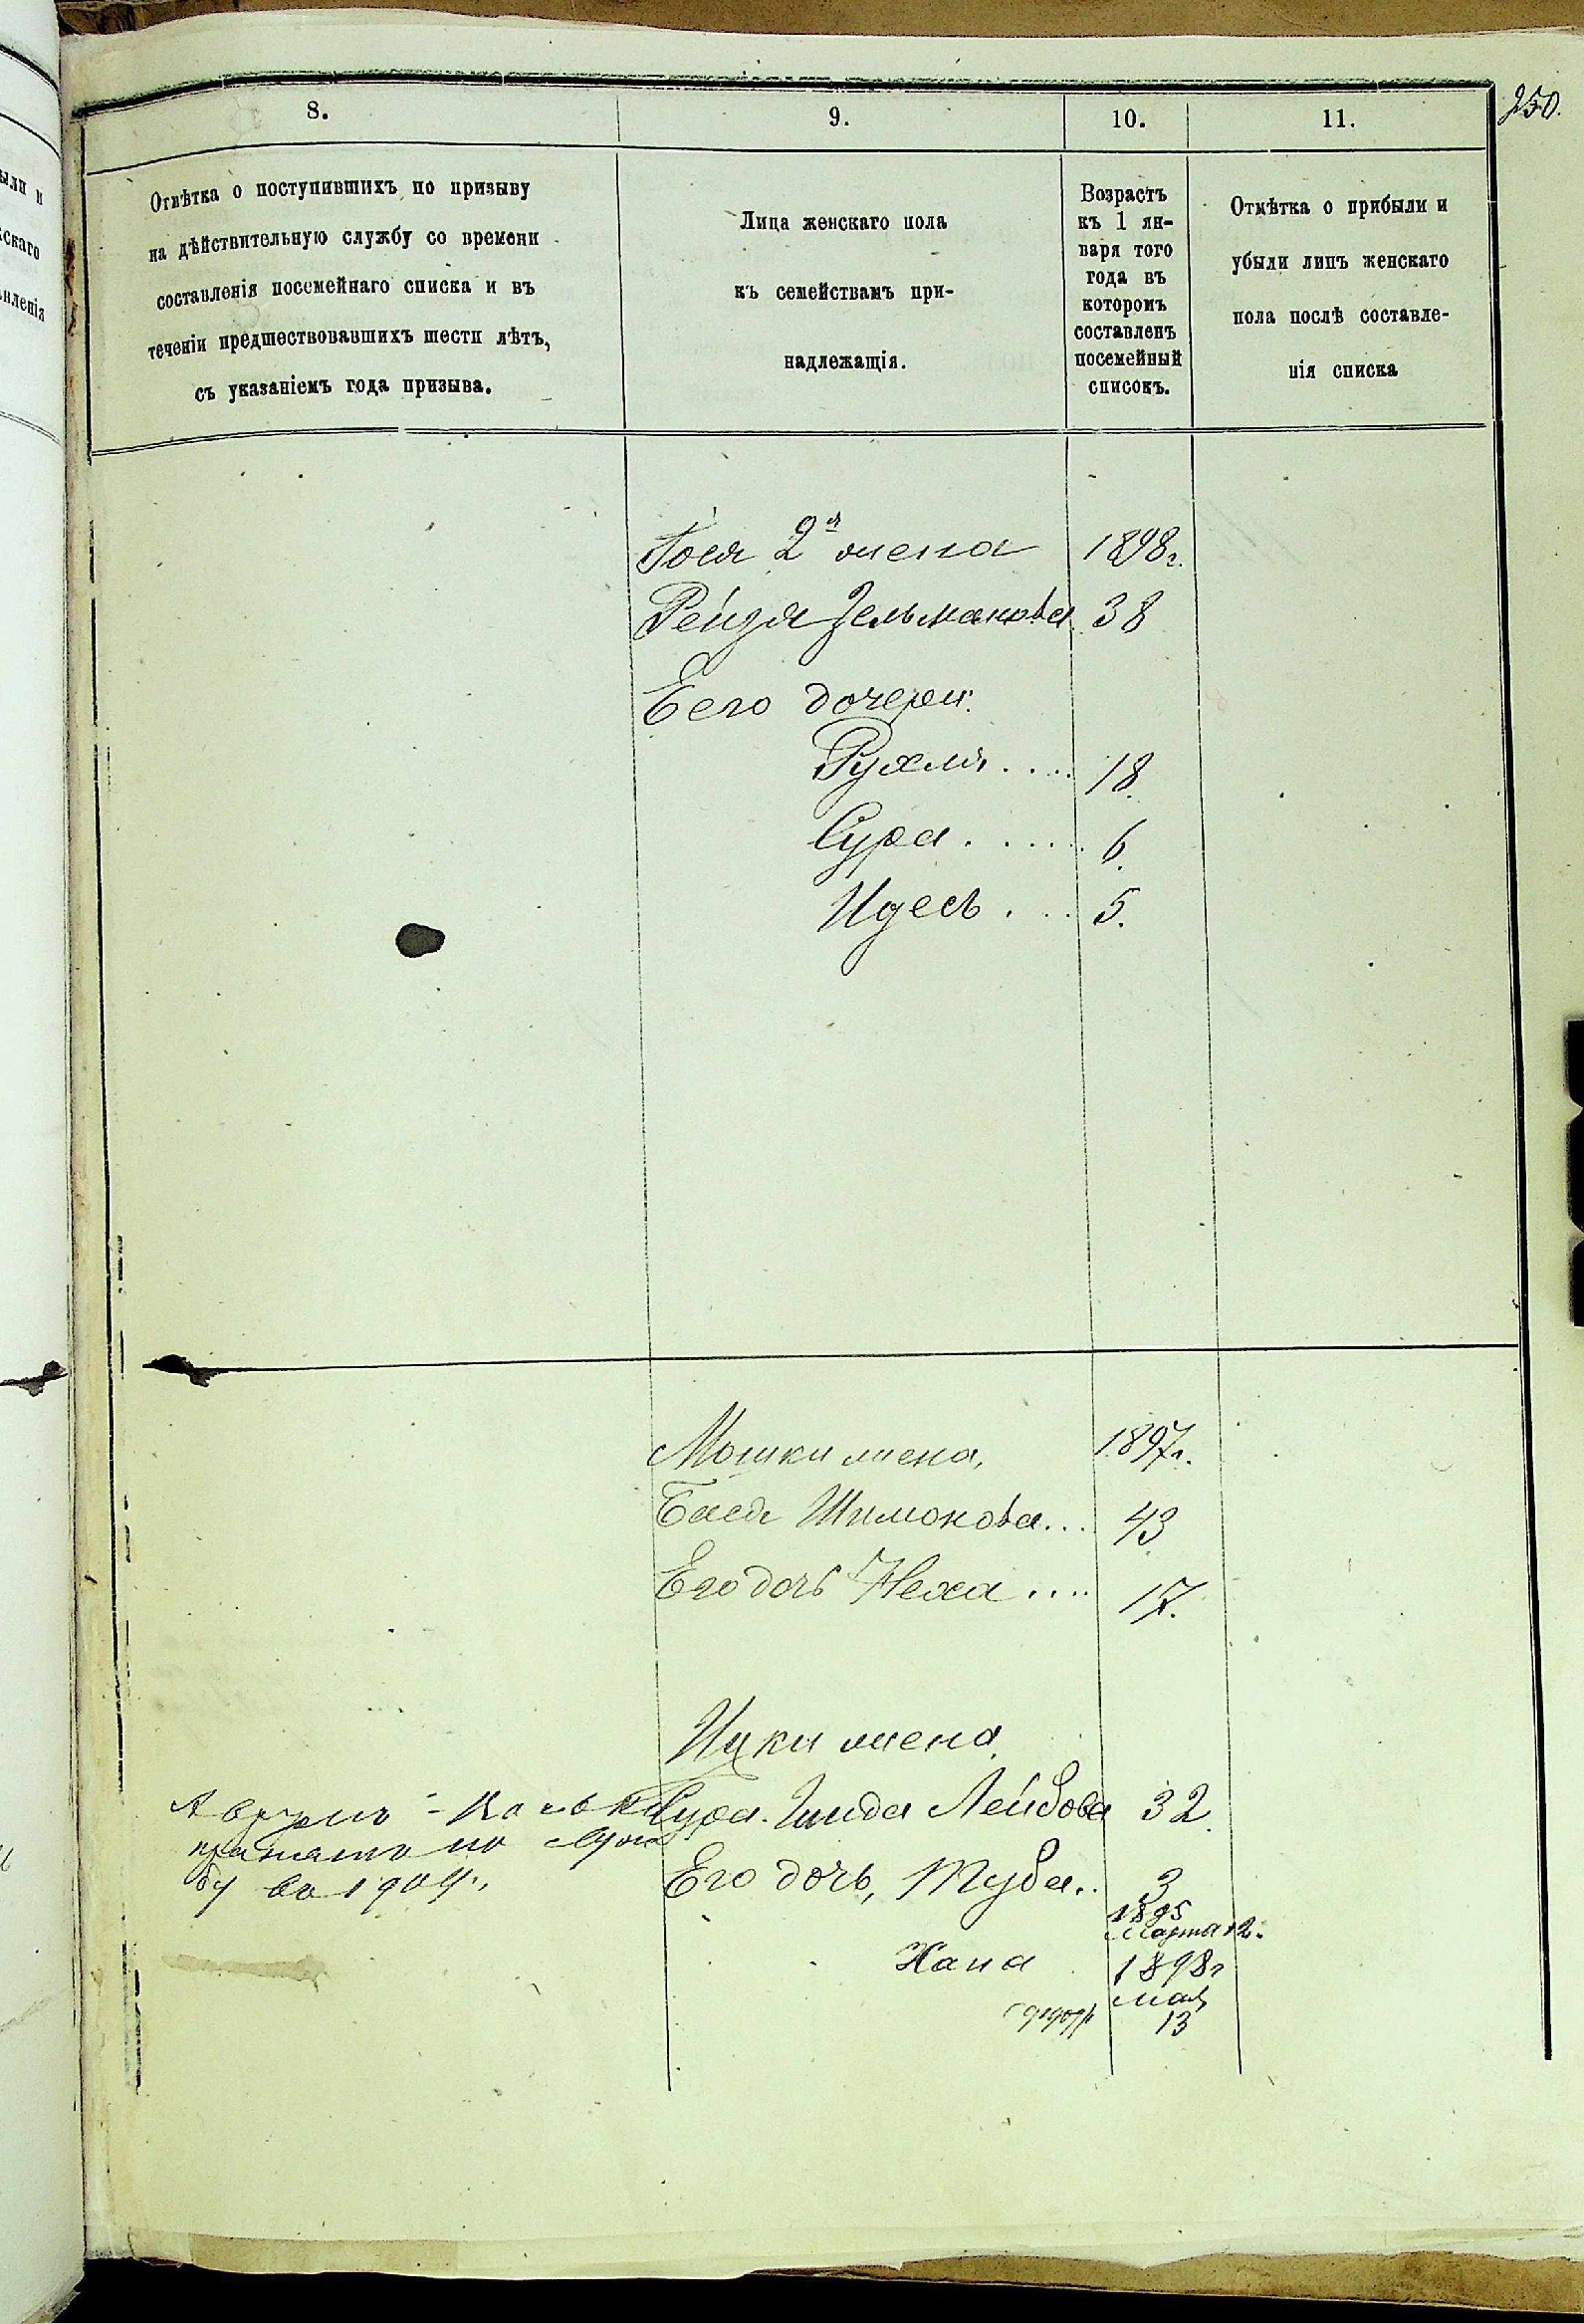 250.
8.
9.
10.
11.
Отмѣтка о поступившихъ по призыву
на дѣйствительную службу со времени
составленія посемейнаго списка и въ
теченіи предшествовавшихъ шести лѣтъ,
съ указаніемъ года призыва.
Лица женскаго пола
къ семействамъ при-
надлежащія.
Возрастъ
къ 1 ян-
варя того
года въ
которомъ
составленъ
посемейный
списокъ.
Отмѣтка о прибыли и
убыли лицъ женскаго
пола послѣ составле-
нія списка
2я жена 1898г.
Рейзя Зельманова 38
Его дочери:
Рухля.... 18.
Сура..... 6.
Идесь... 5.
Мошки жена, 1897г.
Бася Шимонова... 43
Его дочь Неха.... 17.
Ицки жена
Сура-Гинда Лейбова 32.
Его дочь, Туба.. 3
1895
Марта 12.
Хана 1898г
мая
13
принятъ по
ду въ 1904г.